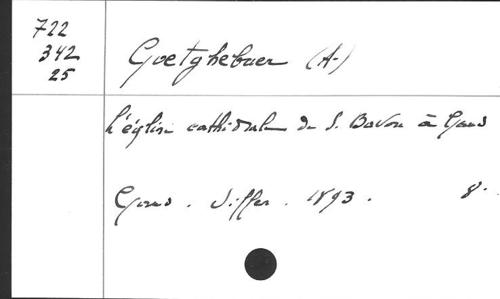 722
342
25
Goetghebuer (A.)
L'église cathédrale de S. Bavon à Gand
Gand. Siffer. 1893. 8.